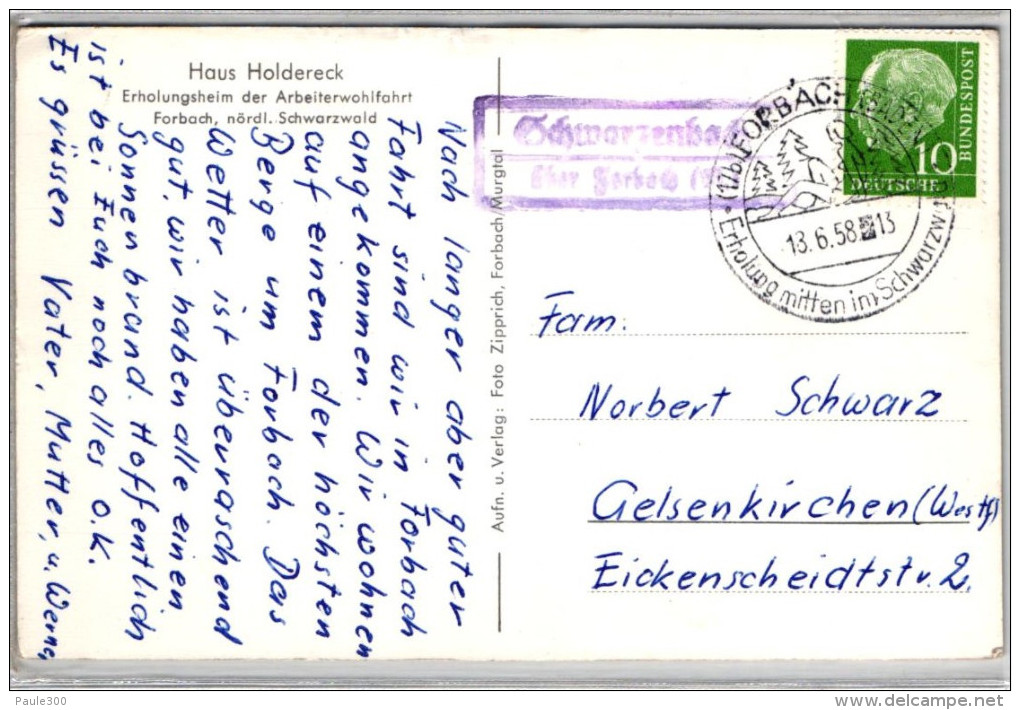 Haus Holdereck
Erholungsheim der Arbeiterwohlfahrt
Forbach, nördl. Schwarzwald
Nach langer aber guter
Fahrt sind wir in Forbach
angekommen. Wir wohnen
auf einem der höchsten
Berge um Forbach. Das
Wetter ist überraschend
gut, wir haben alle einen
Sonnenbrand. Hoffentlich
ist bei Euch noch alles o.k.
Es grüssen Vater, Mutter, u. Werner
Aufn. u. Verlag: Foto Zipprich, Forbach/Murgtal
Schwarzenbach
über Forbach
(17b) FORBACH (BADEN)
13.6.58 13
Erholung mitten im Schwarzwald
BUNDESPOST
10
DEUTSCHE
Fam:
Norbert Schwarz
Gelsenkirchen (Westf)
Eickenscheidtstr. 2.
Paule300
delcampe.net